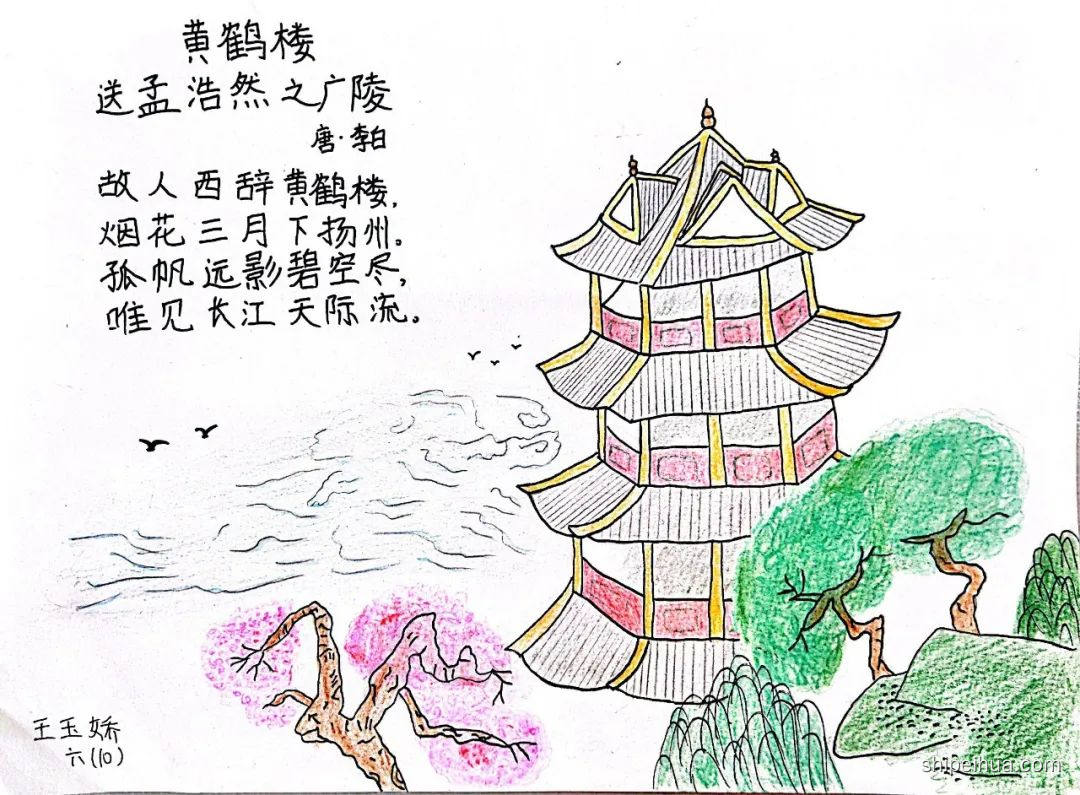 黄鹤楼
送孟浩然之广陵
唐·李白
故人西辞黄鹤楼,
烟花三月下扬州。
孤帆远影碧空尽,
唯见长江天际流。
王玉娇
六(10)
shibeihua.com